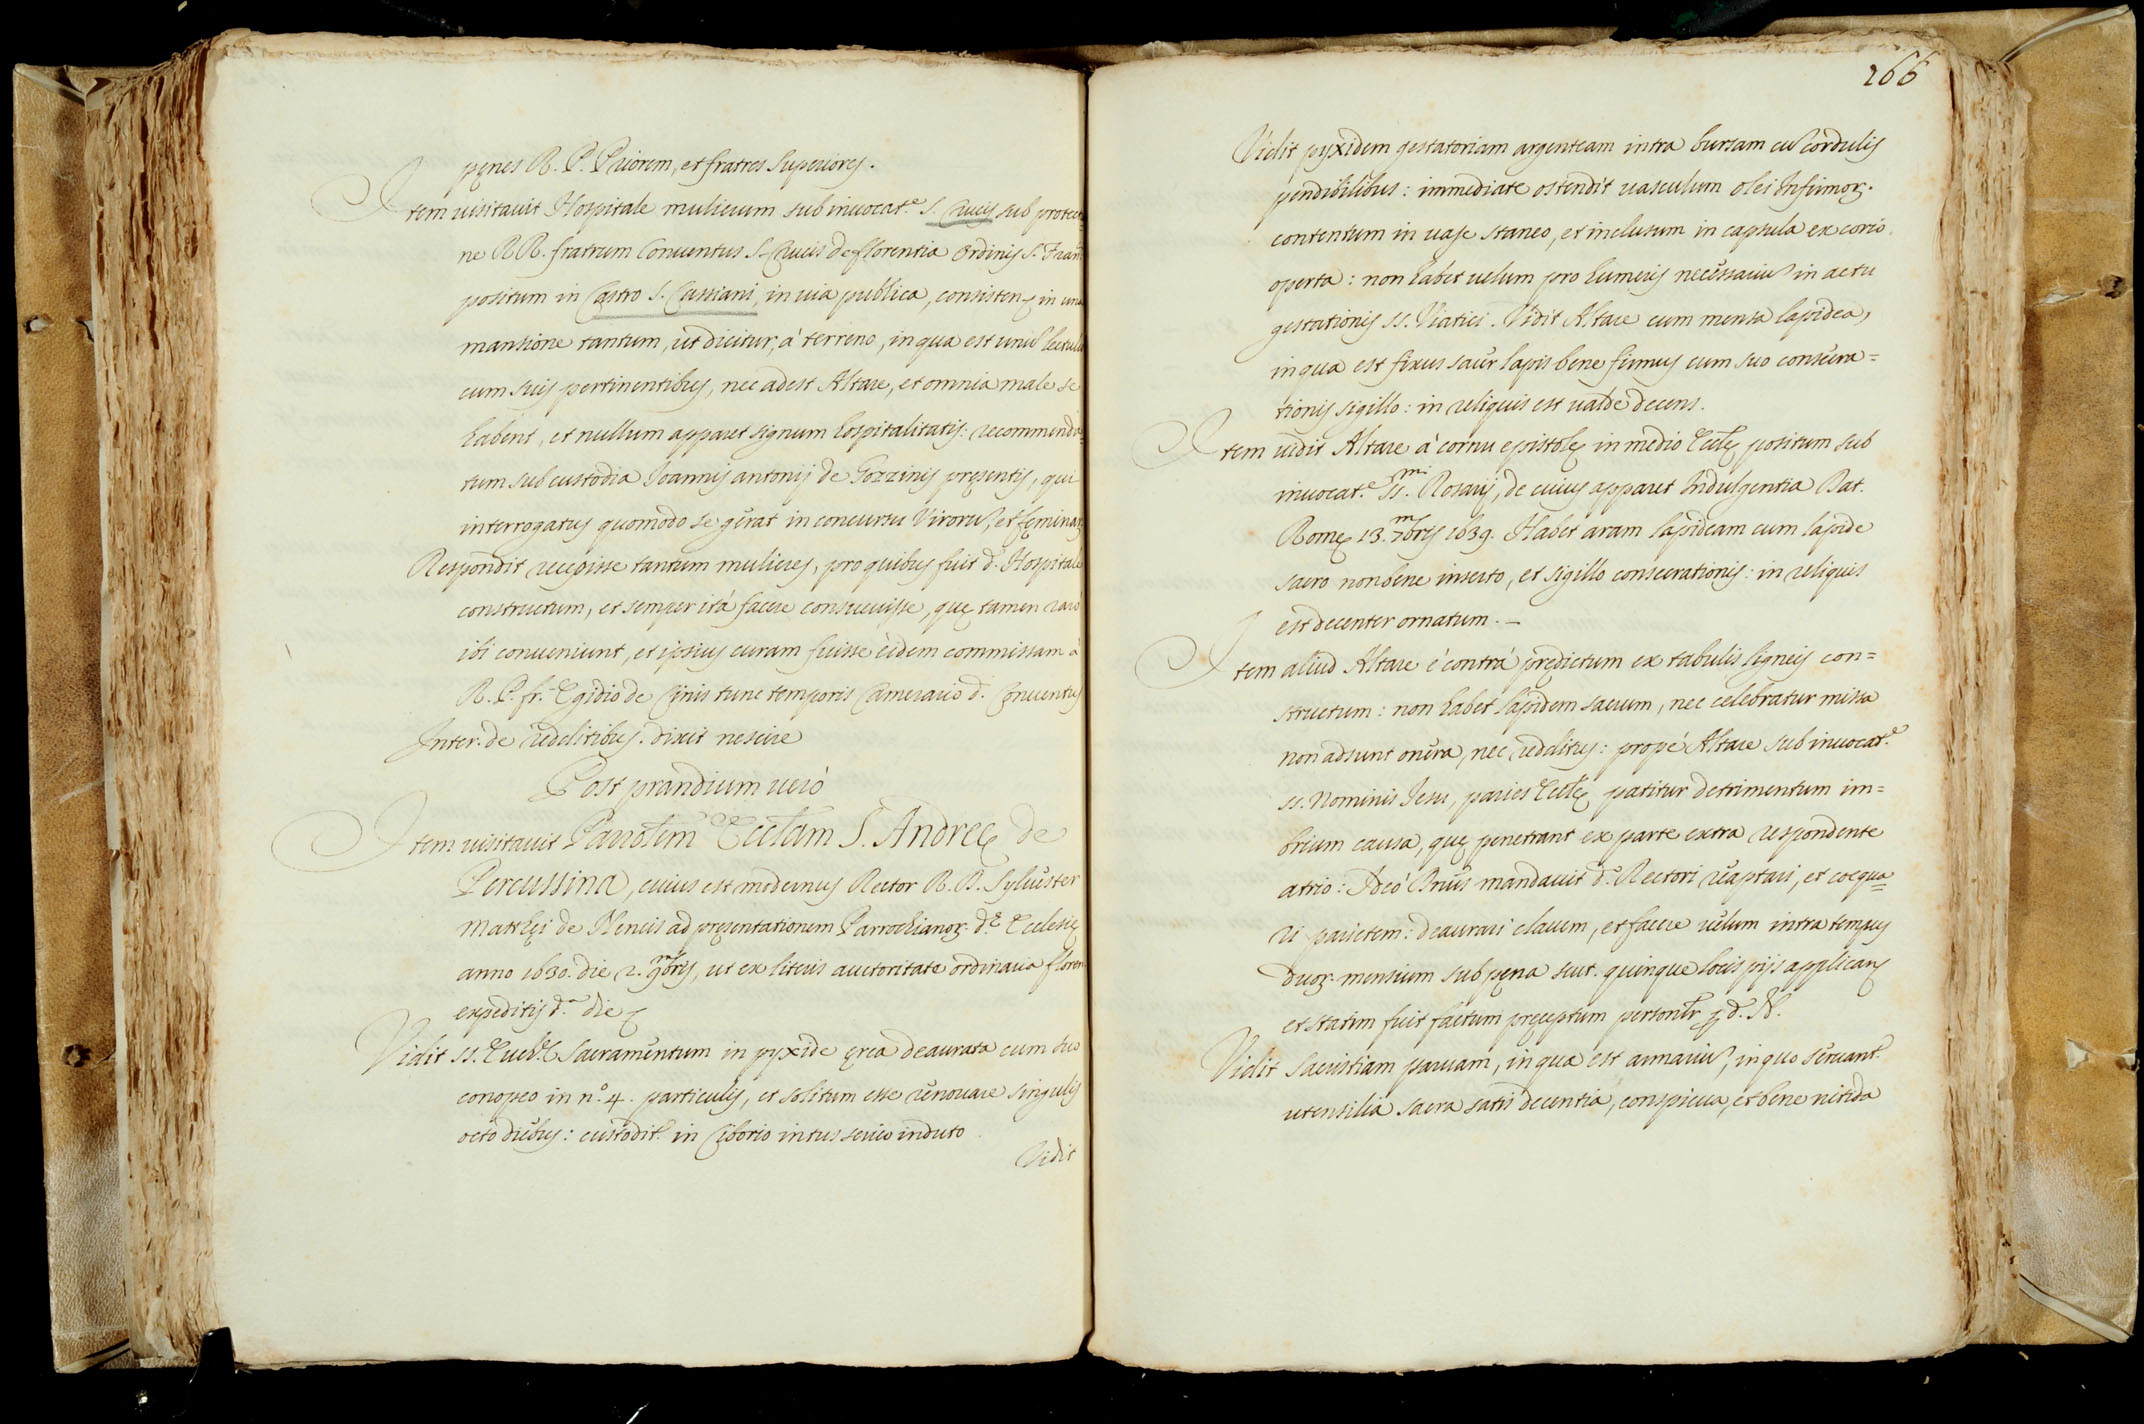 pęnes R. P. Priorem, et fratres Superiores.
Item visitavit Hospitale mulierum sub invocat.e S. Crucis sub protect
ne RR. fratrum Conventus S. Crucis de florentia Ordinis S. Fran
positum in Castro S. Cassiani, in via publica, consistens in una
mansione tantum, ut dicitur, à terreno, in qua est unus lectulus
cum suis pertinentibus, nec adest Altare, et omnia male se
habent, et nullum apparet signum hospitalitatis: recommenda=
tum sub custodia Joannis antonij de Gozzinis pręsentis, qui
interrogatus quomodo se gerat in concursu Viroru, et feminar.
Respondit recepisse tantum mulieres, pro quibus fuit d. Hospitale
constructum, et semper ità facere consuevisse, quę tamen rarò
ibi conveniunt, et ipsius curam fuisse eidem commissam à
R. P. fr. Egidio de Cinis tunc temporis Camerario d. Conventus
Inter. de redditibus. dixit nescire
Post prandium verò
Item visitavit Parrolem Ecclam S. Andreę de
Percussina, cuius est modernus Rector R. D. Sylvester
Matthęi de Nencis ad pręsentationem Parrochianor. d.ę Ecclesię
anno 1630. die 2. 9mbris, ut ex literis auctoritate ordinaria floren.
expeditis d.a die
Vidit ss. Euchę Sacramentum in pyxide ęrea deaurata cum suo
conopeo in n.o 4. particulis, et solitum esse renovare singulis
octo diebus: custodit. in Ciborio intus serico induto
Vidit
266
Vidit pyxidem gestatoriam argenteam intra bursam cu cordulis
pendibilibus: immediate ostendit vasculum olei Infirmor.
contentum in vase staneo, et inclusum in capsula ex corio
operta: non habet velum pro humeris necessariu in actu
gestationis ss. Viatici. Vidit Altare cum mensa lapidea,
in qua est fixus sacer lapis bene firmus cum suo consecra=
tionis sigillo: in reliquis est valde decens.
Item vidit Altare à cornu epistolę in medio Ecclę positum sub
invocat.e ss.mi Rosarij, de cuius apparet Indulgentia Dat.
Romę 13. 7mbris 1639. Habet aram lapideam cum lapide
sacro non bene inserto, et sigillo consecrationis: in reliquis
est decenter ornatum. —
Item aliud Altare è contrà prędictum ex tabulis ligneis con=
structum: non habet lapidem sacrum, nec celebratur missa
non adsunt onera, nec redditus: propè Altare sub invocat.e
ss. Nominis Jesu, paries Ecclę patitur detrimentum im=
brium causa, quę penetrant ex parte extra respondente
atrio: Adeò Dnus mandavit d.o Rectori reaptari, et coequa=
ri parietem: deaurari clavem, et facere velum intra tempus
duor. mensium sub pęna scut. quinque locis pijs applicans
et statim fuit factum pręceptum personlr p d. N.
Vidit Sacristiam parvam, in qua est armariu, in quo servant.
utensilia sacra satis decentia, conspicua, et bene nitida